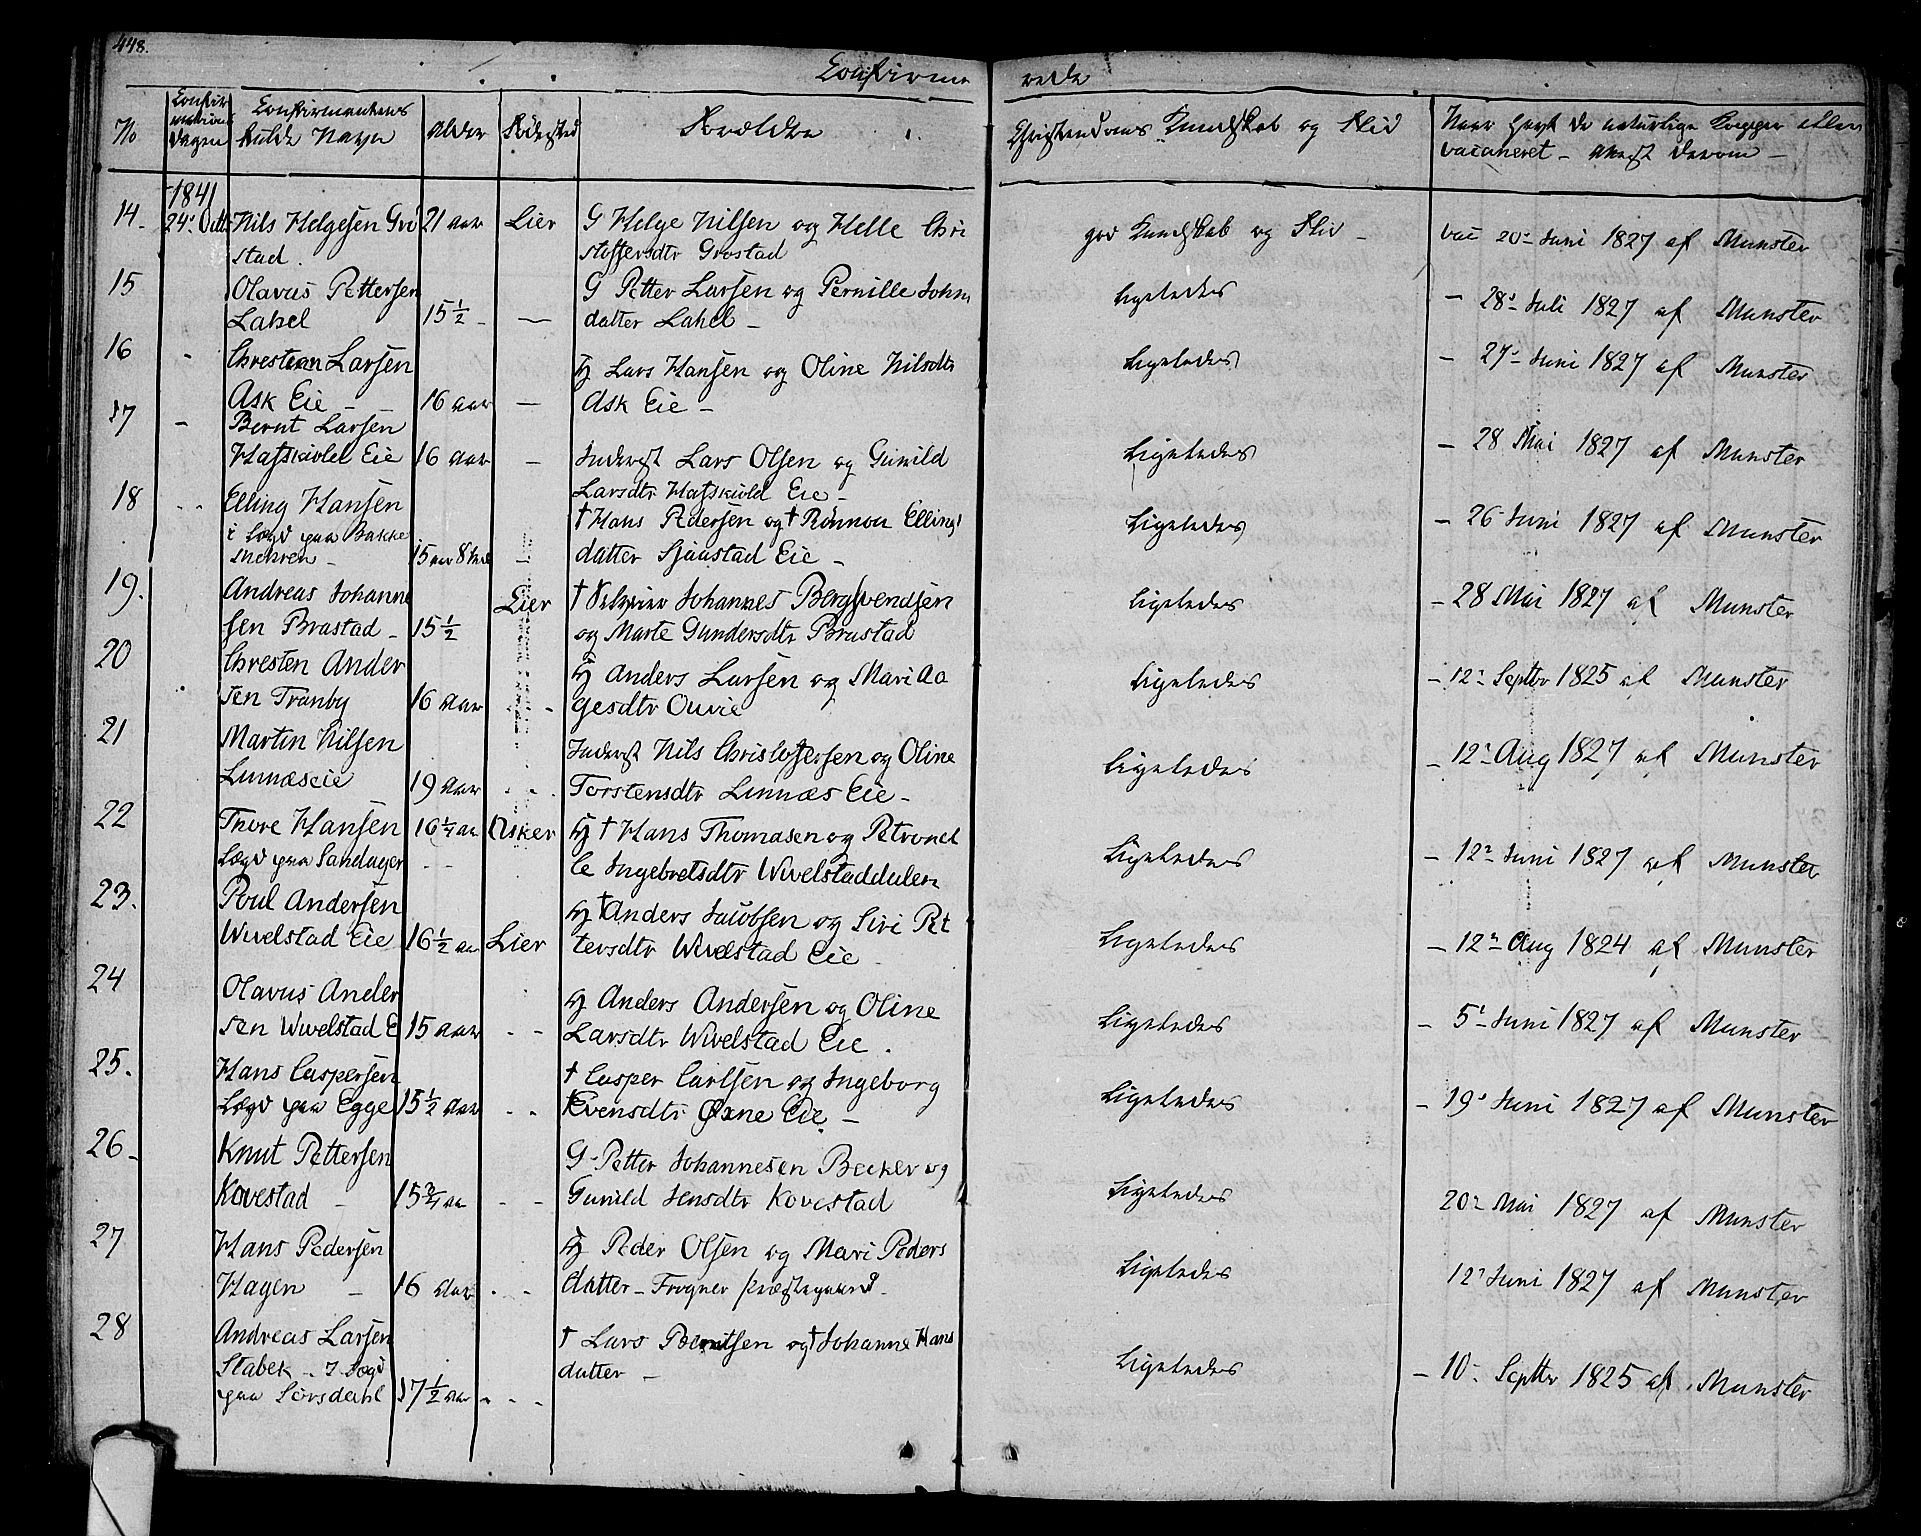 448.
Confirme rede
No Confirmations Dagen Confirmantens fulde Navn Alder Fødested Forældre Christendoms Kundskab og Flid Naar havt de naturlige Kopper eller vaccineret - Attest derom -
1841
14. 24' Octb Nils Helgesen Gro 21 aar Lier G Helge Nilsen og Helle Chri god Kundskab og Flid - vac 20- Juni 1827 af Munster
stad. stoffersdtr Grostad
15 Olavus Pettersen G Petter Larsen og Pernille Johns Ligeledes - 28' Juli 1827 af Munster
Lahel 15 1/2 - — datter Lahel -
16 - Christian Larsen Hj Lars Hansen og Oline Nilsdtr Ligeledes - 27' Juni 1827 af Munster
Ask Eie - 16 aar - Ask Eie -
17 - Bernt Larsen
Hafskiolel Eie 16 aar - Inderst Lars Olsen og Gunild Ligeledes - 28 Mai 1827 af Munster
Larsdtr Hafskiold Eie -
18 - - Elling Hansen † Hans Pedersen og † Rønnou Ellings Ligeledes - 26 Juni 1827 af Munster
i Lægd paa Bakke
mehren - 15 aar 8 Mdr - datter Sjaastad Eie -
19. Andreas Johanne Lier † Johannes Bergsvendsen Ligeledes - 28 Mai 1827 af Munster
sen Brastad - 15 1/2 og Marte Gundersdtr Brastad
20 Christen Ander Hj Anders Larsen og Mari Aa Ligeledes - 12' Septbr 1825 af Munster
sen Tranby 16 aar - gesdtr Ouvie
21 Martin Nilsen Inderst Nils Christofersen og Oline Ligeledes - 12' Aug 1827 af Munster
Linnæseie 19 aar - - Torstensdtr Linnæs Eie -
22 Thore Hansen 16 1/4 aar Asker Hj † Hans Thomasen og Petronel Ligeledes - 12' Juni 1827 af Munster
Lægd paa Sandager - - le Ingebretsdtr Wivelstaddalen
23. Poul Andersen Hj † Anders Jacobsen og Siri Pet
Wivelstad Eie 16 1/2 aar Lier tersdtr Wivelstad Eie Ligeledes - 12' Aug 1824 af Munster
24 Olavus Ander Hj Anders Andersen og Oline
sen Wivelstad E 15 aar - - Larsdtr Wivelstad Eie. Ligeledes - 5' Juni 1827 af Munster
25. Hans Caspersen † Casper Carlsen og Ingeborg
Lægd paa Egge 15 1/2 aar - - Evensdtr Øxne Eie - Ligeledes - 19' Juni 1827 af Munster
26 - Knut Pettersen G- Petter Johannesen Becker og
Kovestad - 15 3/4 aar - - Gunild Jensdtr Kovestad Ligeledes 20' Mai 1827 af Munster
27 Hans Pedersen Hj Peder Olsen og Mari Peders
Hagen - 16 aar - - datter - Frogner Præstegaard. Ligeledes 12' Juni 1827 af Munster
28 Andreas Larsen † Lars Berntsen og † Johanne Hans
Stabek - I Lægd datter - Ligeledes - 10' Septbr 1825 af Munster
paa Sørsdahl 17 1/2 aar - - -